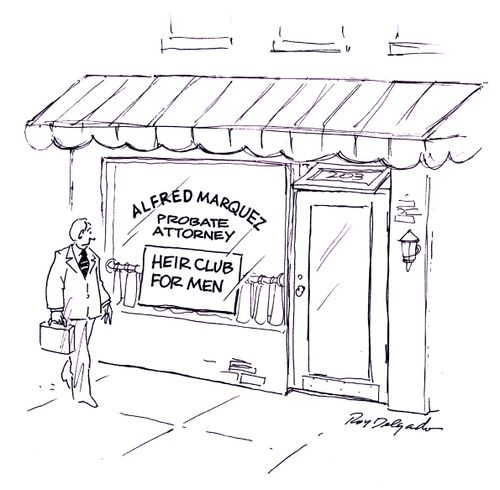 203
ALFRED MARQUEZ
PROBATE
ATTORNEY
HEIR CLUB
FOR MEN
Roy Delgado